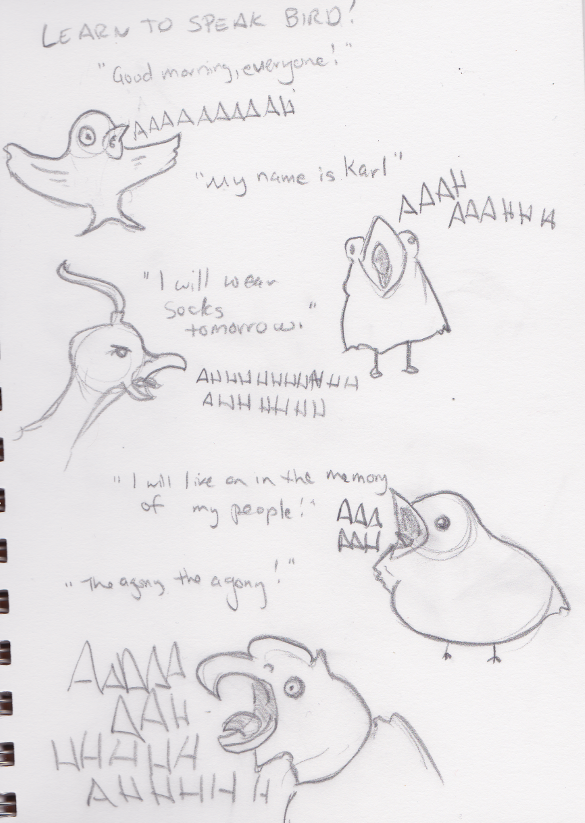 LEARN TO SPEAK BIRD!
"Good morning, everyone!"
AAAAAAAAAAH
"My name is Karl"
AAAH
AAAHHH
"I will wear
socks
tomorrow."
AHHHHHHHHHH
AHHHHHH
"I will live on in the memory
of my people!"
AAA
AAH
"The agony the agony!"
AAAAA
AAH
HHHHH
AHHHHHH